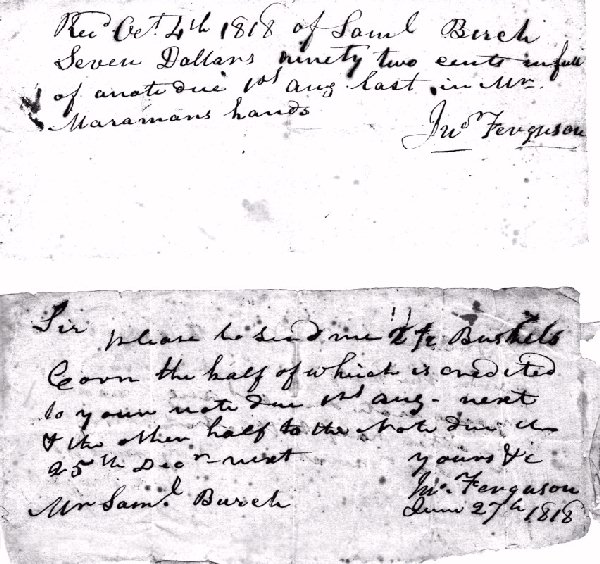 Recd Oct 4th 1818 of Saml Burch
Seven Dollars ninety two cents in full
of a note due 1st Aug last in Mr
Maramans hands
Jno Ferguson
Sir please to send me Bushels
Corn the half of which is credited
to your note due 1st Aug. next
& the other half to the Note due the
25th Decr next yours &c
Jno. Ferguson
Mr Saml Burch June 27th 1818